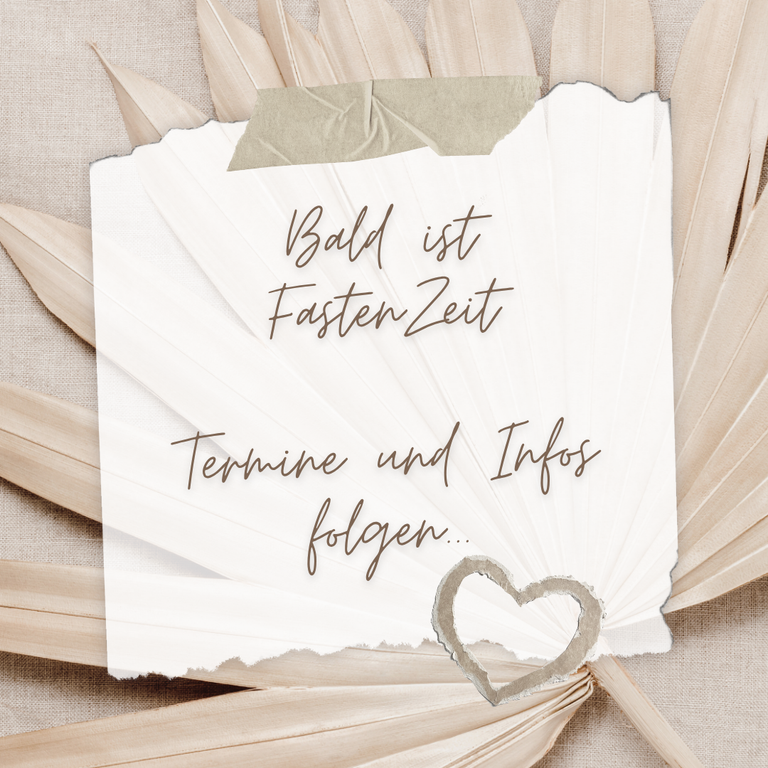 Bald ist
FastenZeit
Termine und Infos
folgen...